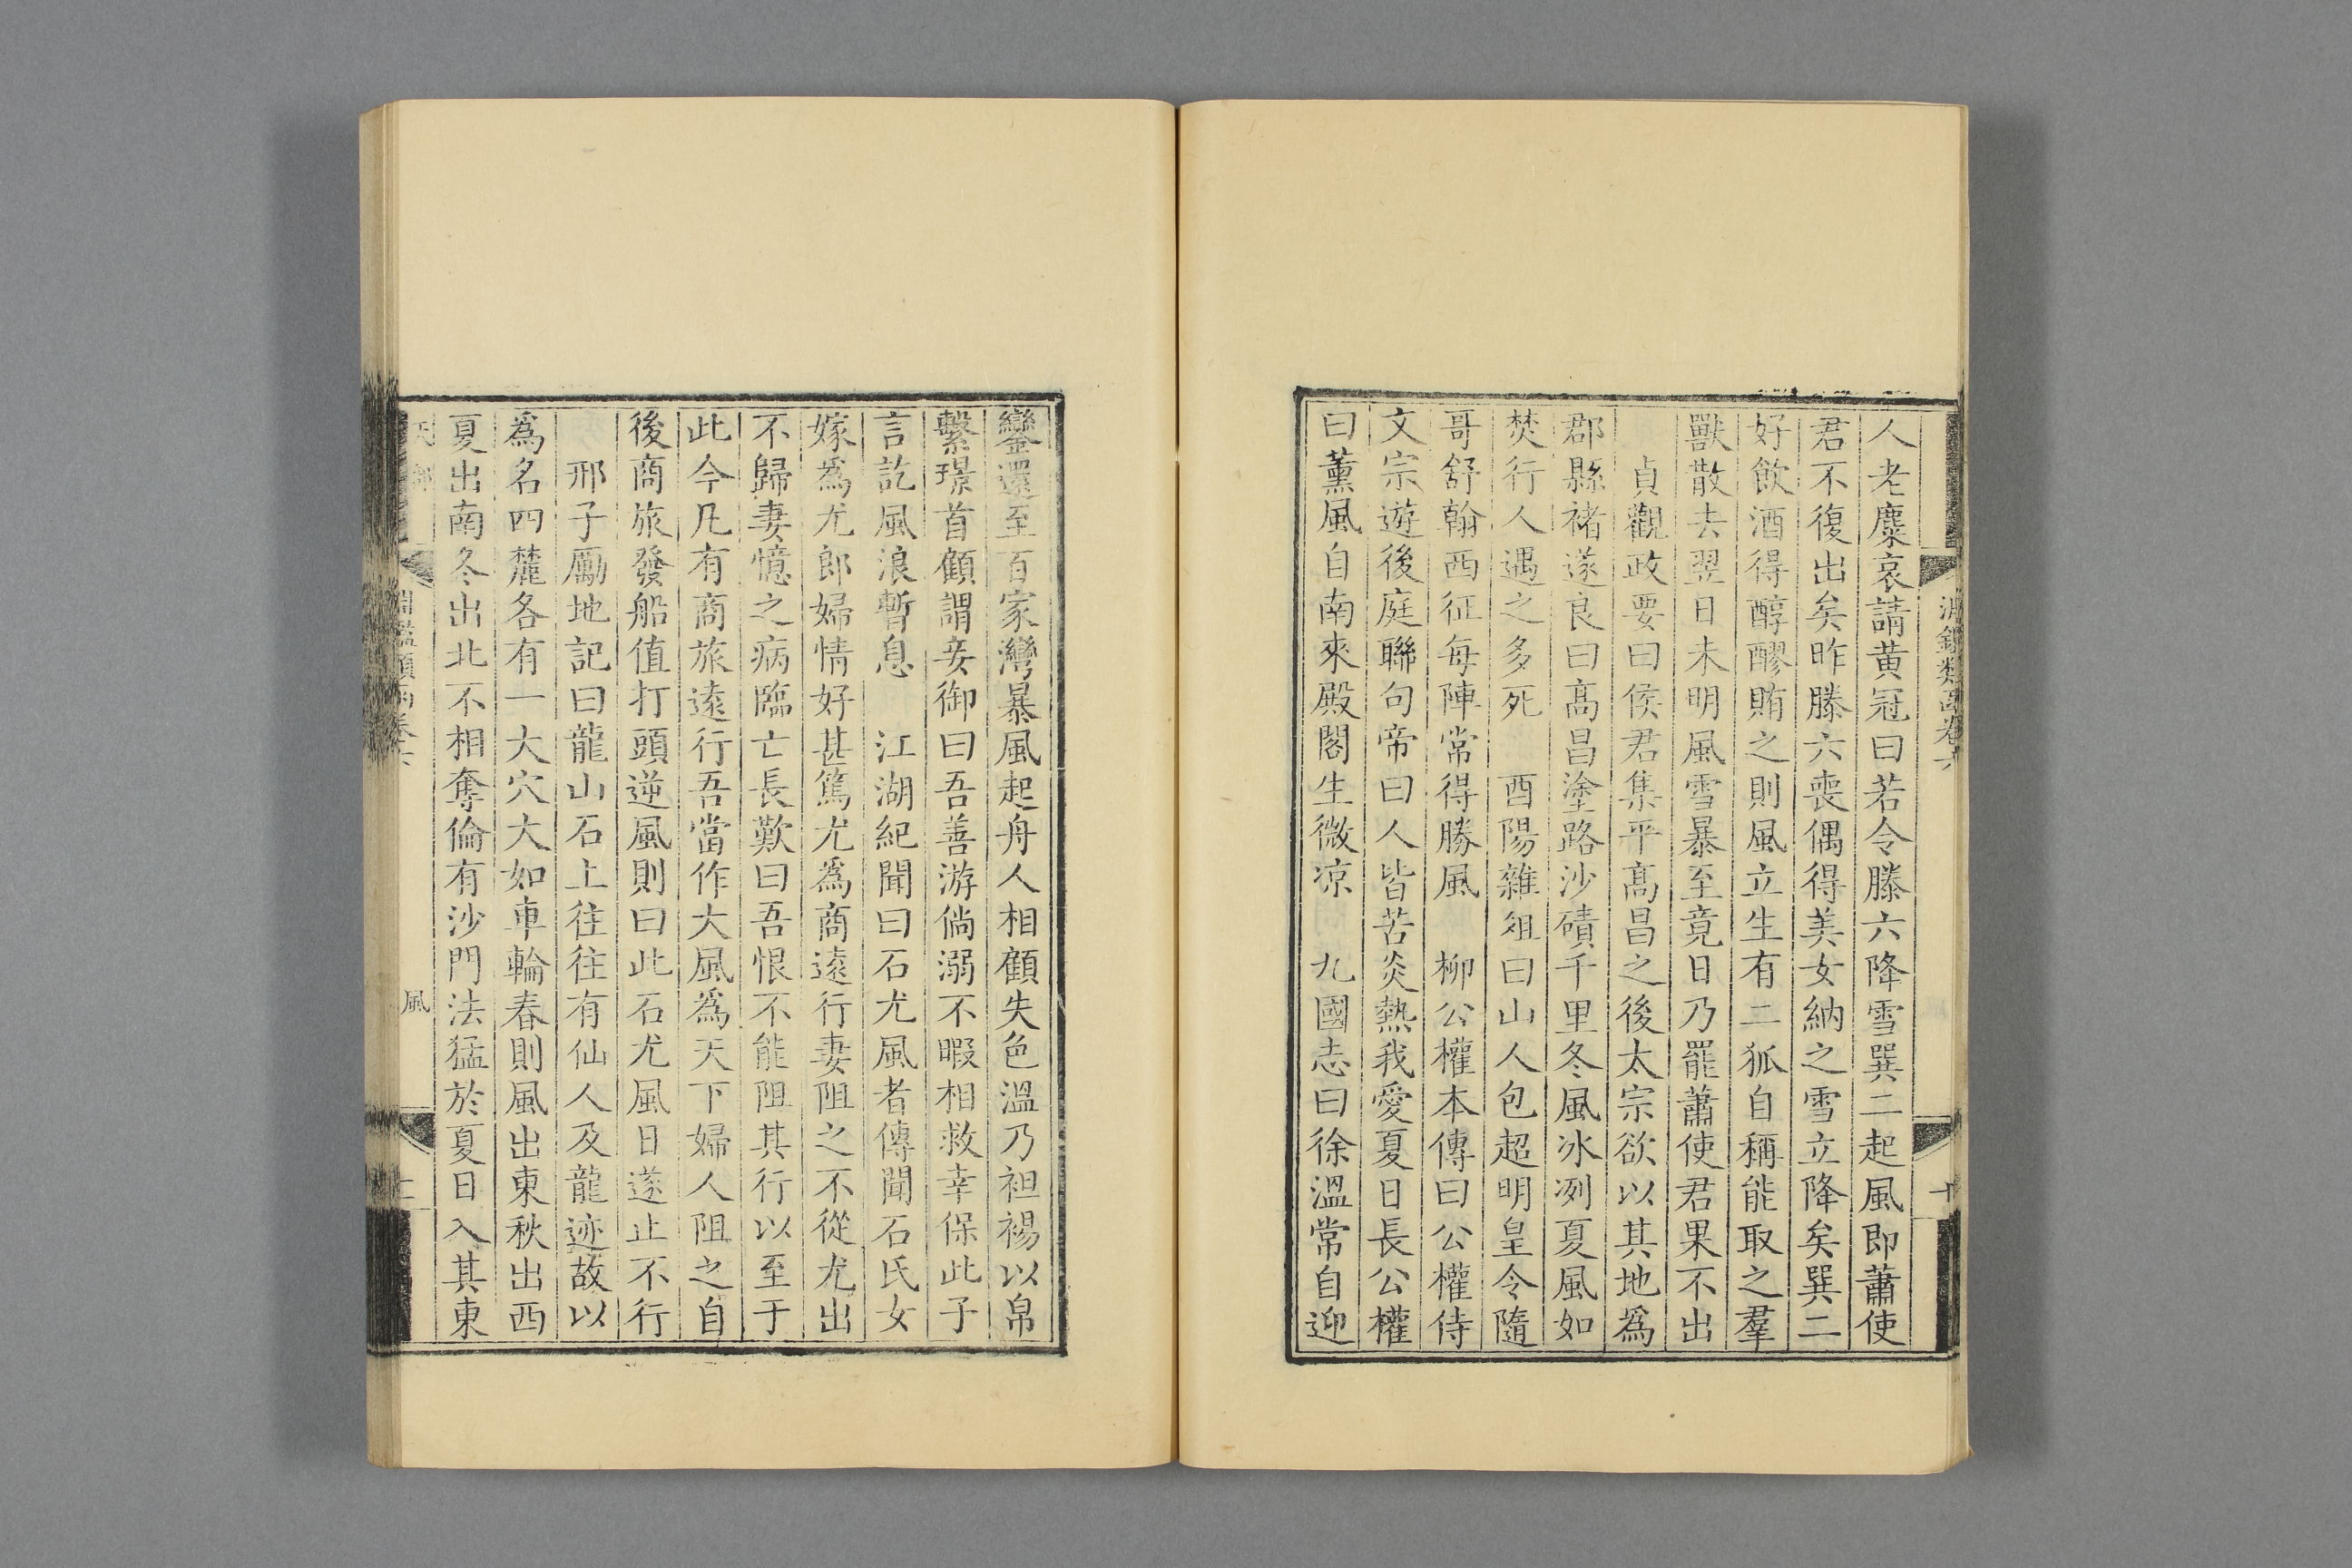 淵鑑類函卷六
十
人老麋哀請黄冠曰若令滕六降雪巽二起風即蕭使
君不復出矣昨滕六喪偶得美女納之雪立降矣巽二
好飲酒得醇醪賄之則風立生有二狐自稱能取之羣
獸散去翌日未明風雪暴至竟日乃罷蕭使君果不出
貞觀政要曰侯君集平髙昌之後太宗欲以其地爲
郡縣褚遂良曰髙昌塗路沙磧千里冬風冰冽夏風如
焚行人遇之多死　酉陽雜俎曰山人包超明皇令隨
哥舒翰西征每陣常得勝風　柳公權本傳曰公權侍
文宗遊後庭聯句帝曰人皆苦炎熱我愛夏日長公權
曰薰風自南來殿閣生微凉　九國志曰徐溫常自迎
鑾還至百家灣暴風起舟人相顧失色溫乃袒裼以帛
繫璟首顧謂妾御曰吾善游倘溺不暇相救幸保此子
言訖風浪暫息　江湖紀聞曰石尤風者傳聞石氏女
嫁爲尤郎婦情好甚篤尤爲商遠行妻阻之不從尤出
不歸妻憶之病臨亡長歎曰吾恨不能阻其行以至于
此今凡有商旅遠行吾當作大風爲天下婦人阻之自
後商旅發船值打頭逆風則曰此石尤風日遂止不行
邢子勵地記曰龍山石上往往有仙人及龍迹故以
爲名四麓各有一大穴大如車輪春則風出東秋出西
夏出南冬出北不相奪倫有沙門法猛於夏日入其東
淵鑑類函卷六
風